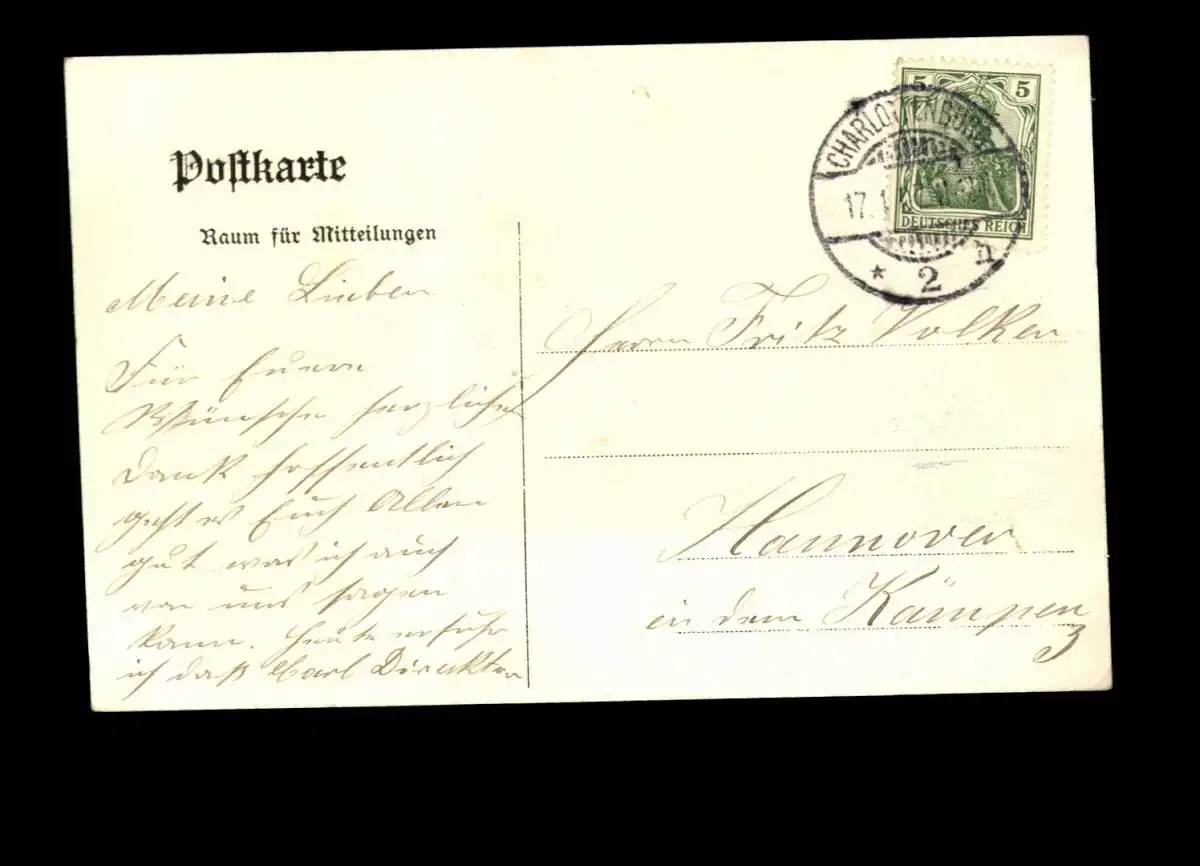 Postkarte
Raum für Mitteilungen
Meine Lieben
Für Euere
Wünsche herzlichst
Dank hoffentlich
geht es Euch Allen
gut was ich auch
von uns sagen
kann. Heute erfuhr
ich daß Carl Direktor
5 5
DEUTSCHES REICH
CHARLOTTENBURG
17.1
* 2 n
Herrn Fritz Volker
Hannover
in dem Kämpen
3